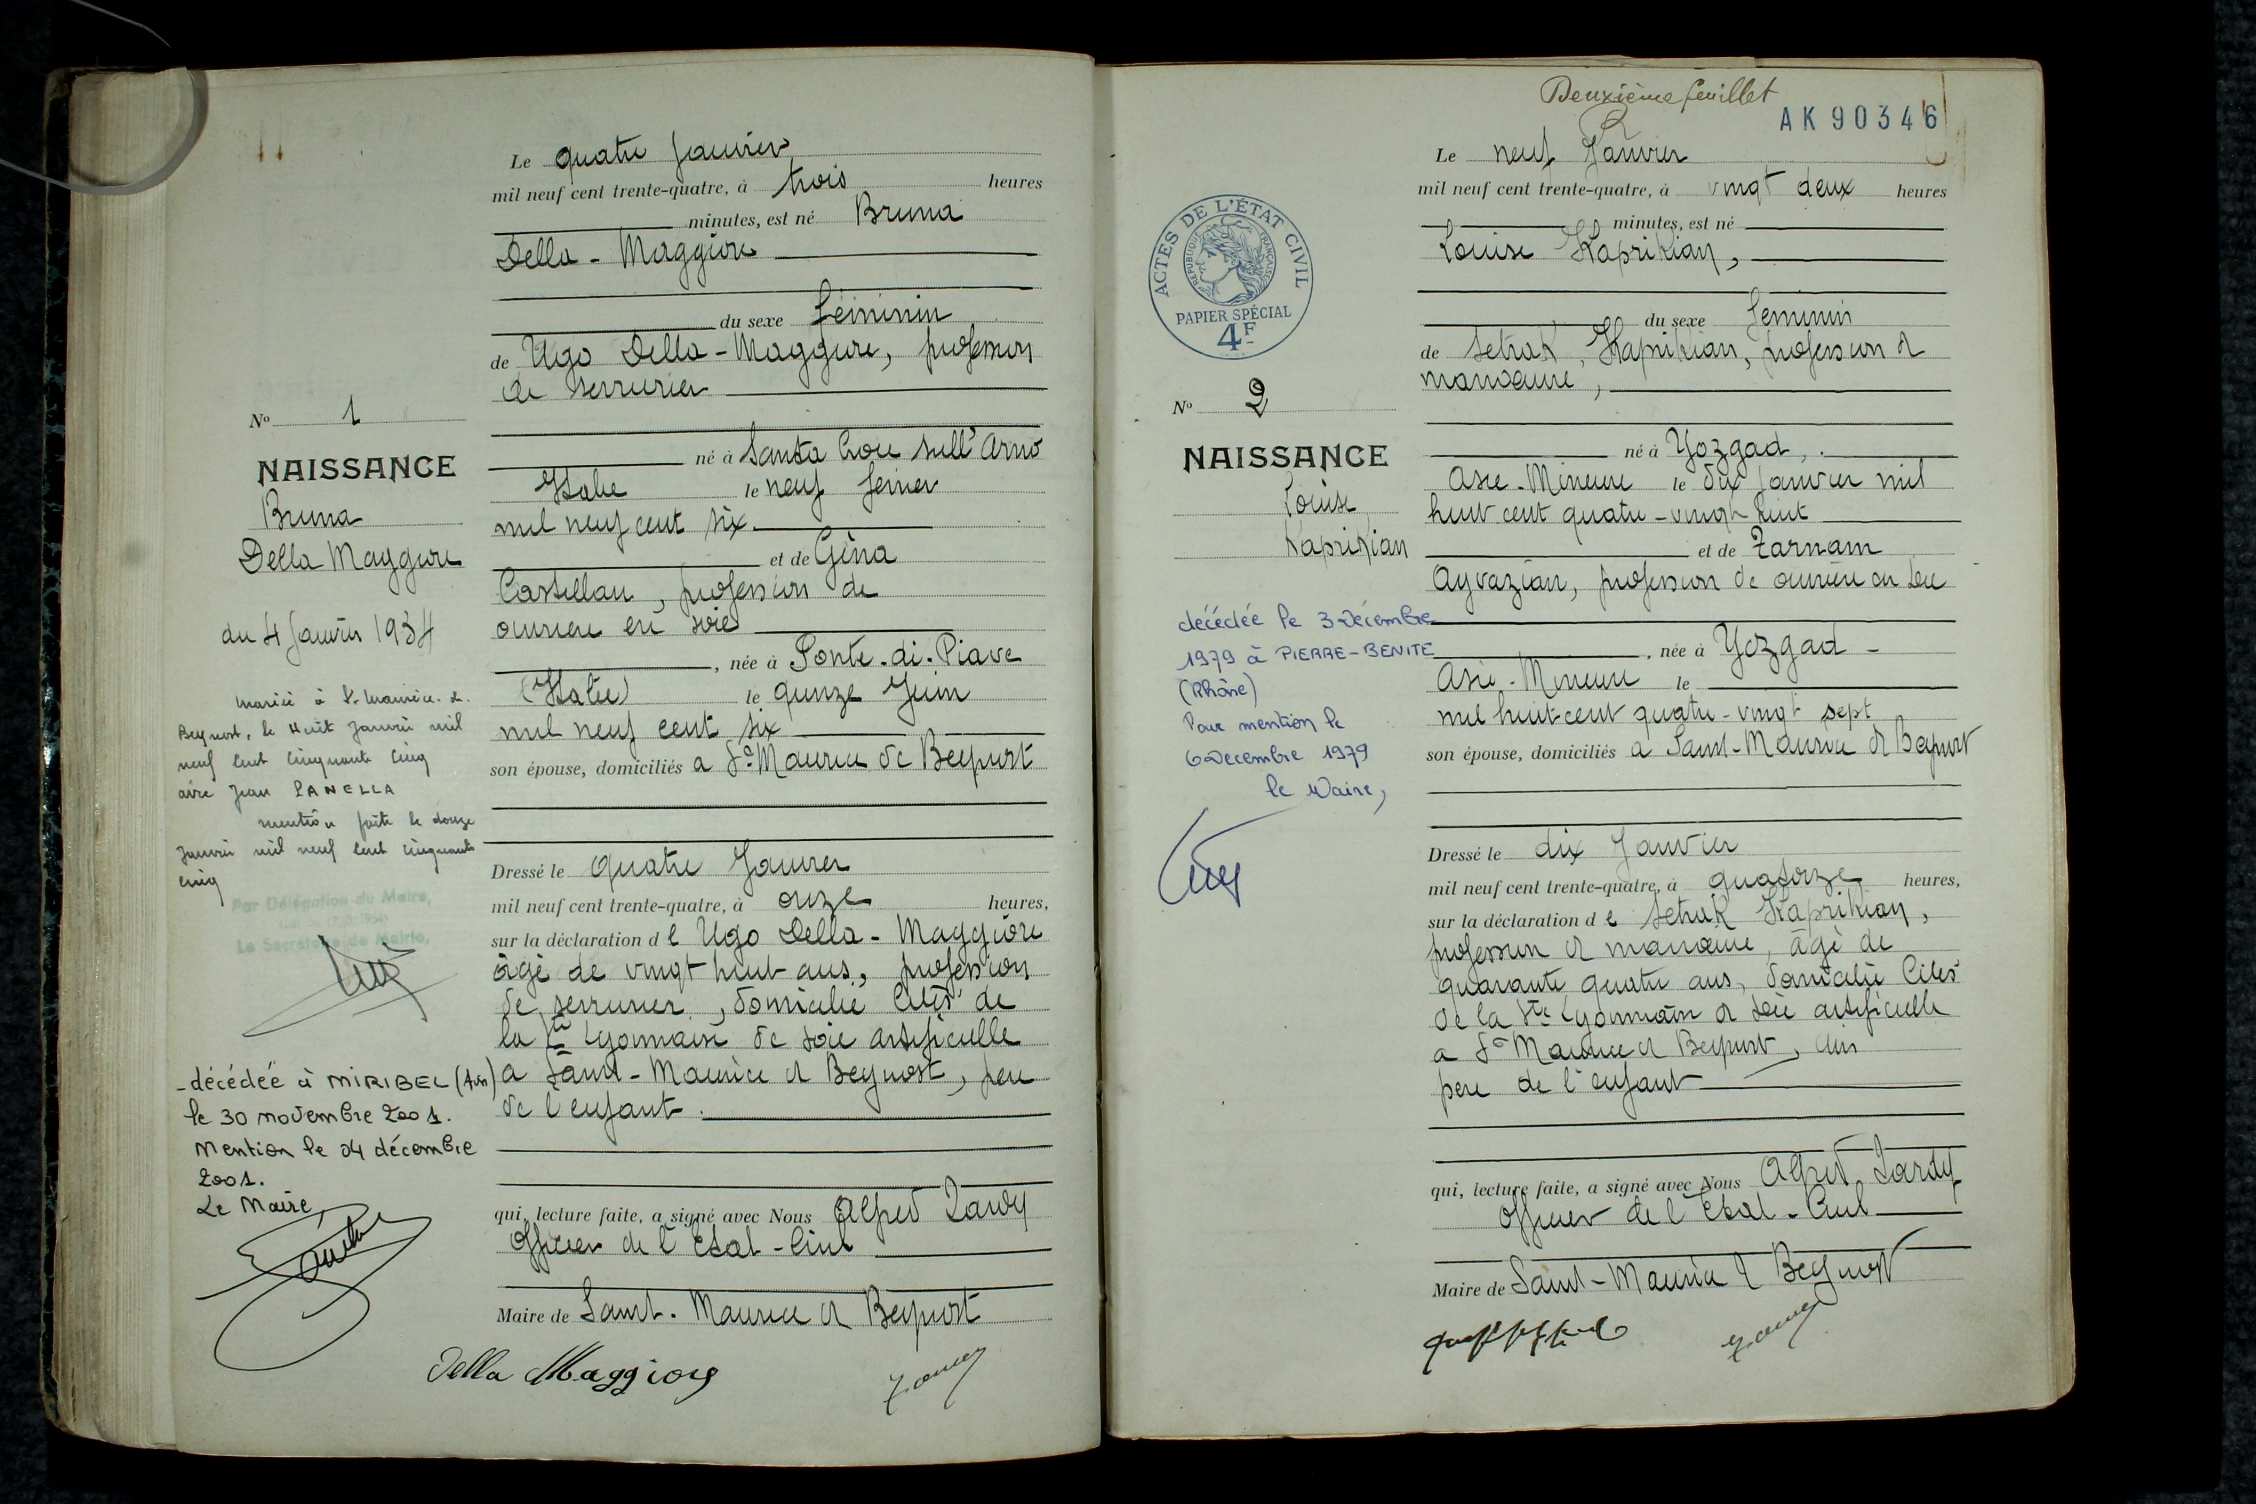 Le quatre Janvier
mil neuf cent trente-quatre, à trois heures
minutes, est né Bruna
Della - Maggiore
du sexe féminin
de Ugo Della - Maggiore, profession
de serrurier
né à Santa Croce sull'Arno
Italie le neuf février
mil neuf cent six
et de Gina
Castellan, profession de
ouvrière en soie
, née à Ponte-di-Piave
(Italie) le quinze Juin
mil neuf cent six
son épouse, domiciliés à St Maurice de Beynost
Dressé le quatre Janvier
mil neuf cent trente-quatre, à onze heures,
sur la déclaration de Ugo Della - Maggiore
âgé de vingt huit ans, profession
de serrurier, domicilié Cités de
la Sté Lyonnaise de Soie artificielle
à Saint-Maurice de Beynost, père
de l'enfant.
qui, lecture faite, a signé avec Nous Alfred Zardy
Officier de l'Etat-Civil
Maire de Saint-Maurice de Beynost
Della Maggiore
No 1
NAISSANCE
Bruna
Della Maggiore
du 4 Janvier 1934
Mariée à St Maurice de
Beynost, le Huit Janvier mil
neuf cent cinquante cinq
avec Jean PANELLA
mention faite le douze
Janvier mil neuf cent cinquante
cinq
Par Délégation du Maire,
Le Secrétaire de Mairie,
- décédée à MIRIBEL (Ain)
le 30 novembre 2001.
Mention le 04 décembre
2001.
Le Maire,
Deuxième feuillet
AK 90346
Le neuf Janvier
mil neuf cent trente-quatre, à vingt deux heures
minutes, est né
Louise Kaprikian,
du sexe féminin
de Setrak Kaprikian, profession de
manœuvre,
né à Yozgad,
Asie-Mineure le dix Janvier mil
huit cent quatre-vingt huit
et de Zarnam
Ayvazian, profession de ouvrière en soie
, née à Yozgad -
Asie-Mineure le
mil huit cent quatre-vingt sept
son épouse, domiciliés à Saint-Maurice de Beynost
Dressé le dix Janvier
mil neuf cent trente-quatre, à quatorze heures,
sur la déclaration de Setrak Kaprikian,
profession de manœuvre, âgé de
quarante quatre ans, domicilié Cités
de la Sté Lyonnaise de Soie artificielle
à St Maurice de Beynost, Ain
père de l'enfant
qui, lecture faite, a signé avec Nous Alfred Zardy
Officier de l'Etat-Civil
Maire de Saint-Maurice de Beynost
ACTES DE L'ÉTAT CIVIL
RÉPUBLIQUE FRANÇAISE
PAPIER SPÉCIAL
4F
No 2
NAISSANCE
Louise
Kaprikian
décédée le 3 Décembre
1979 à PIERRE-BENITE
(Rhône)
Pour mention le
6 Decembre 1979
le Maire,